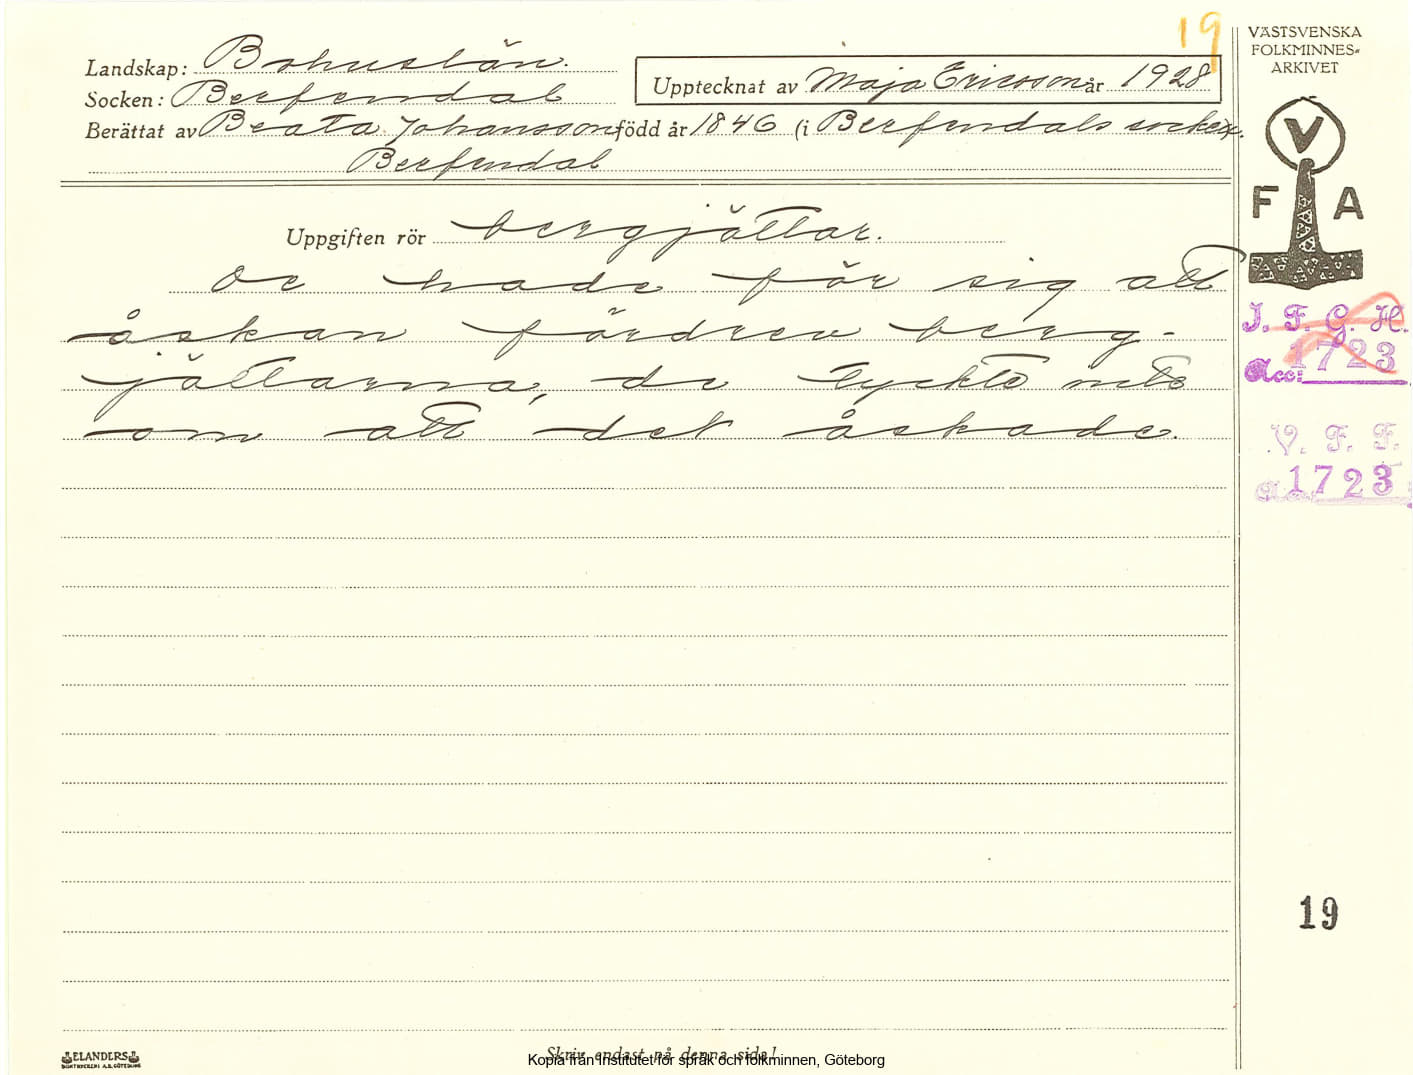 19
VÄSTSVENSKA
FOLKMINNES=
ARKIVET
Landskap: Bohuslän.
Socken: Berfendal
Upptecknat av Maja Ericsson år 1928
Berättat av Beata Johansson född år 1846 (i Berfendals socken).
Berfendal
V
F A
Uppgiften rör bergjättar.
De hade för sig att
åskan fördrev berg-
jättarna, de tyckte inte
om att det åskade.
I. F. G. H.
Acc: 1723
V. F. F.
1723
19
ELANDERS
BOKTRYCKERI A.B. GÖTEBORG
Skriv endast på denna sida!
Kopia från Institutet för språk och folkminnen, Göteborg